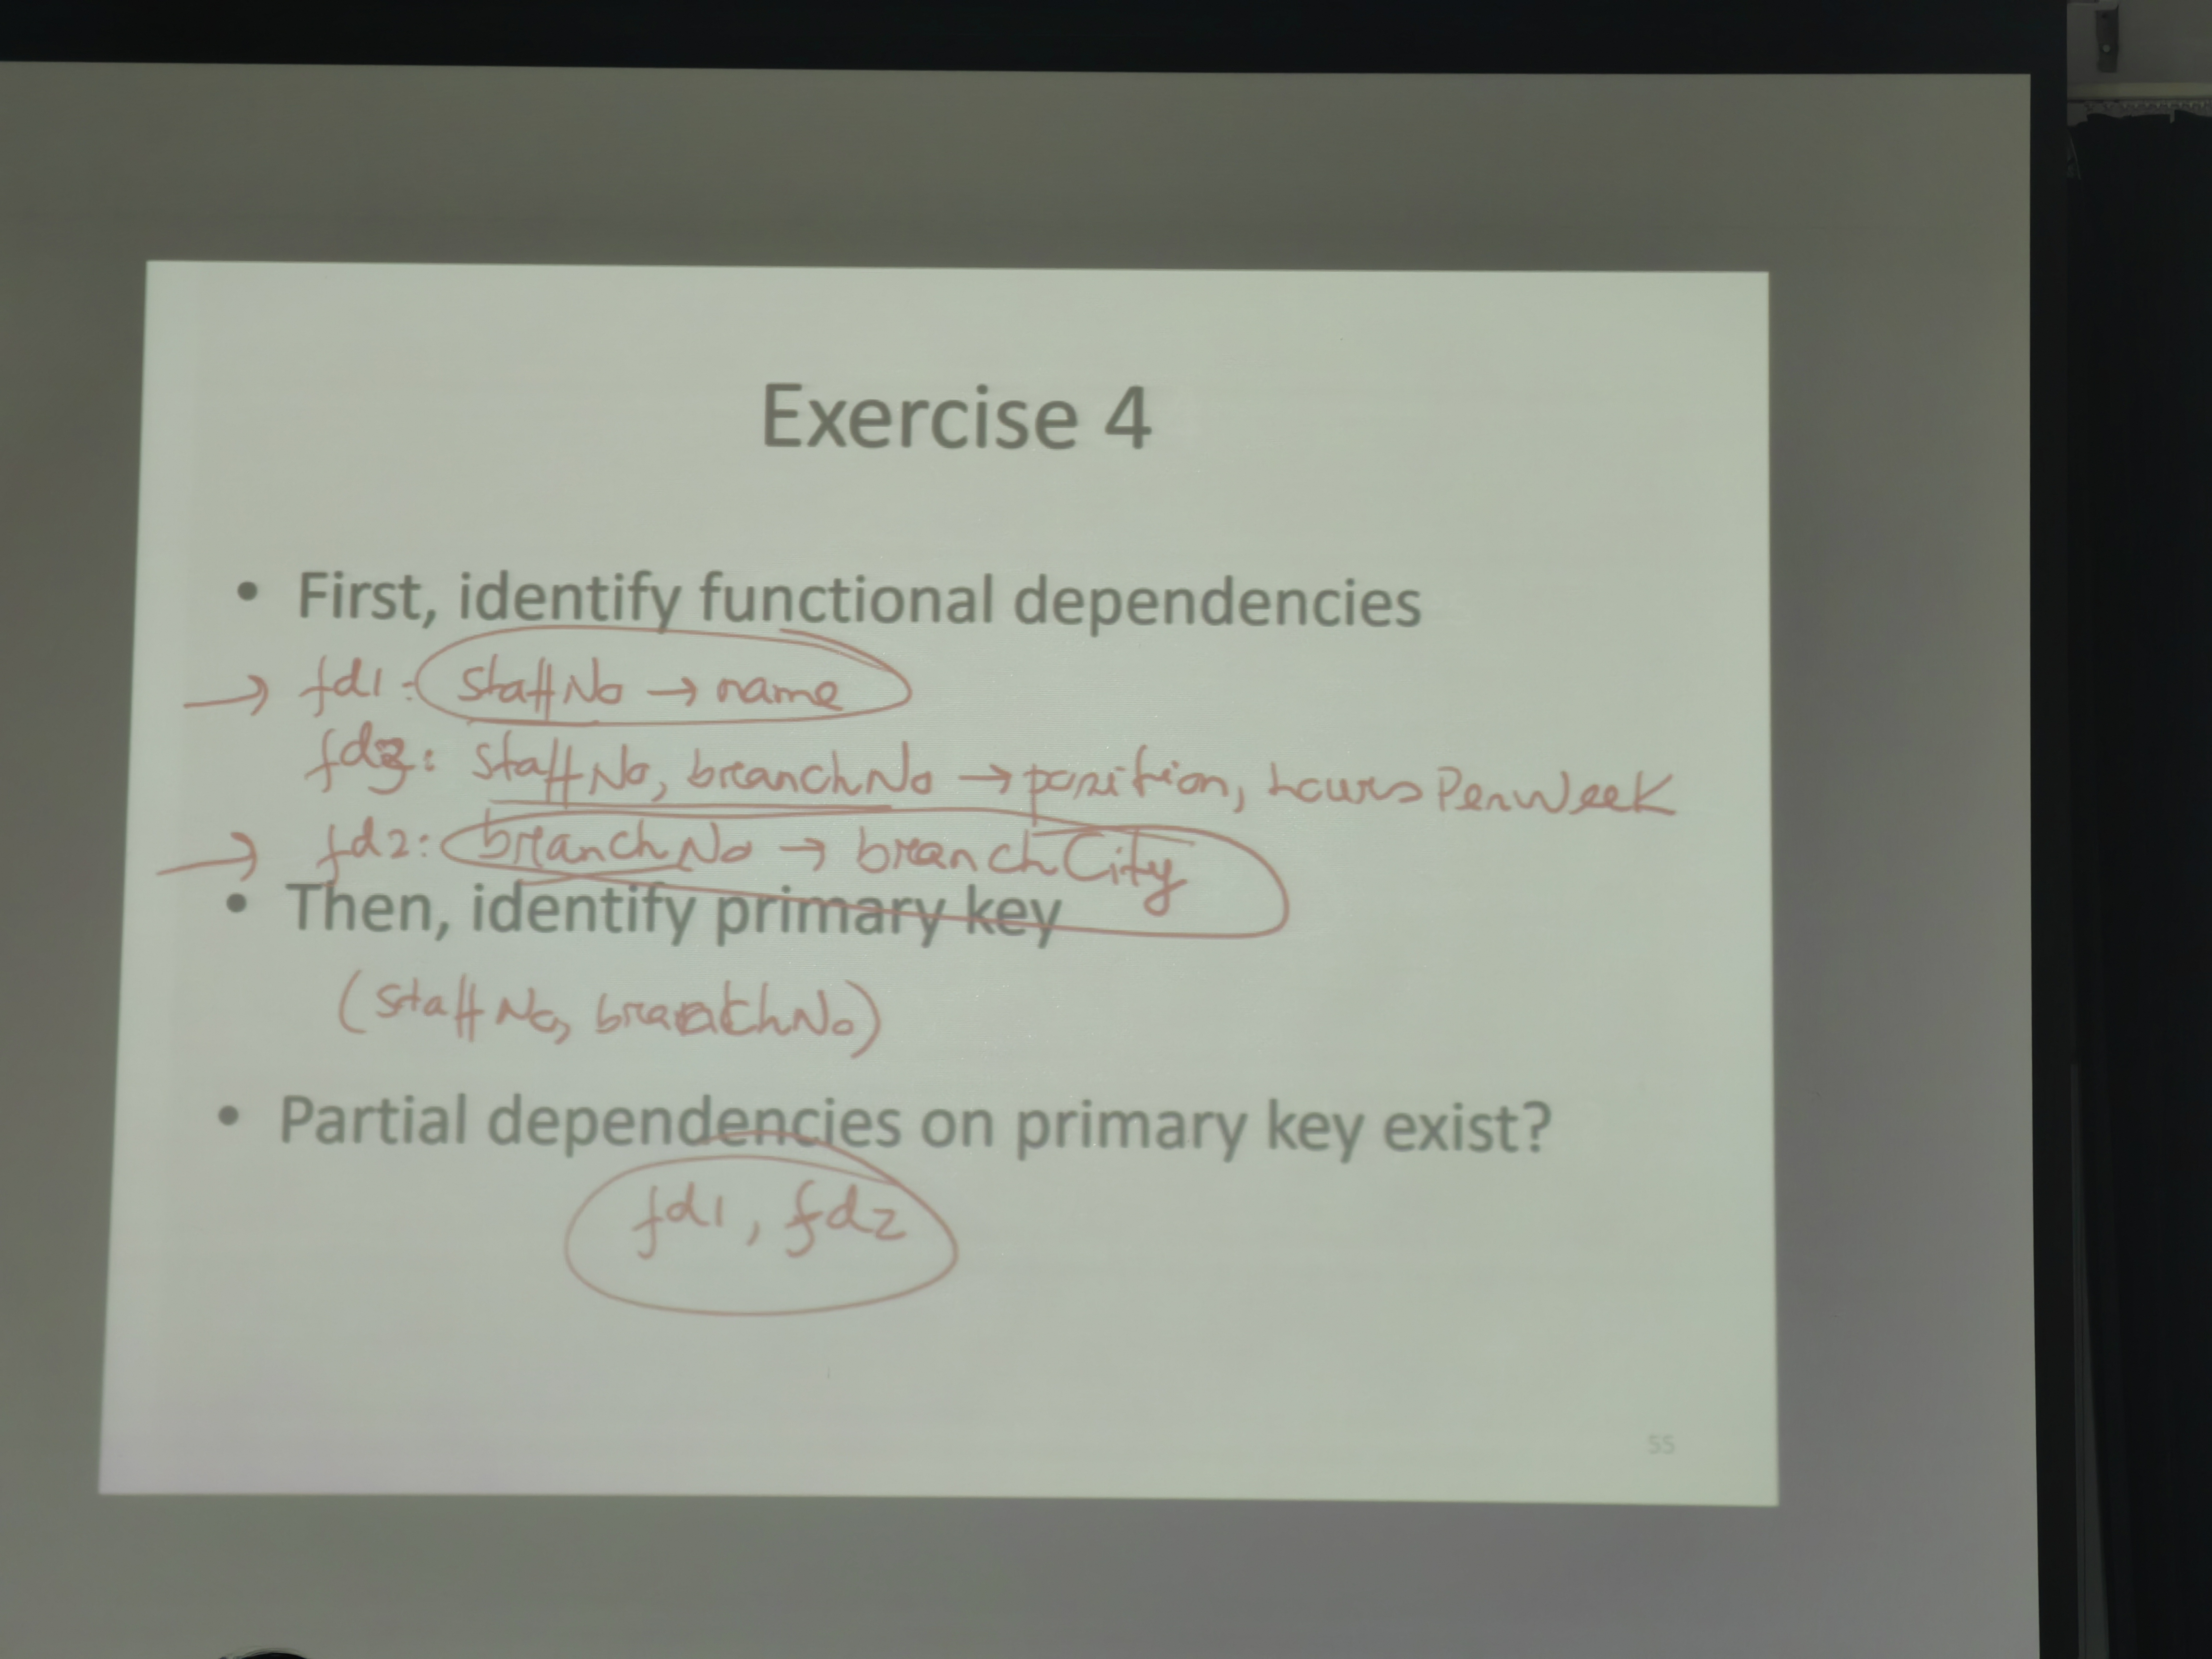 Exercise 4
• First, identify functional dependencies
→ fd1: staffNo → name
fd3: staffNo, branchNo → position, hoursPerWeek
→ fd2: branchNo → branchCity
• Then, identify primary key
(staffNo, branchNo)
• Partial dependencies on primary key exist?
fd1, fd2
55